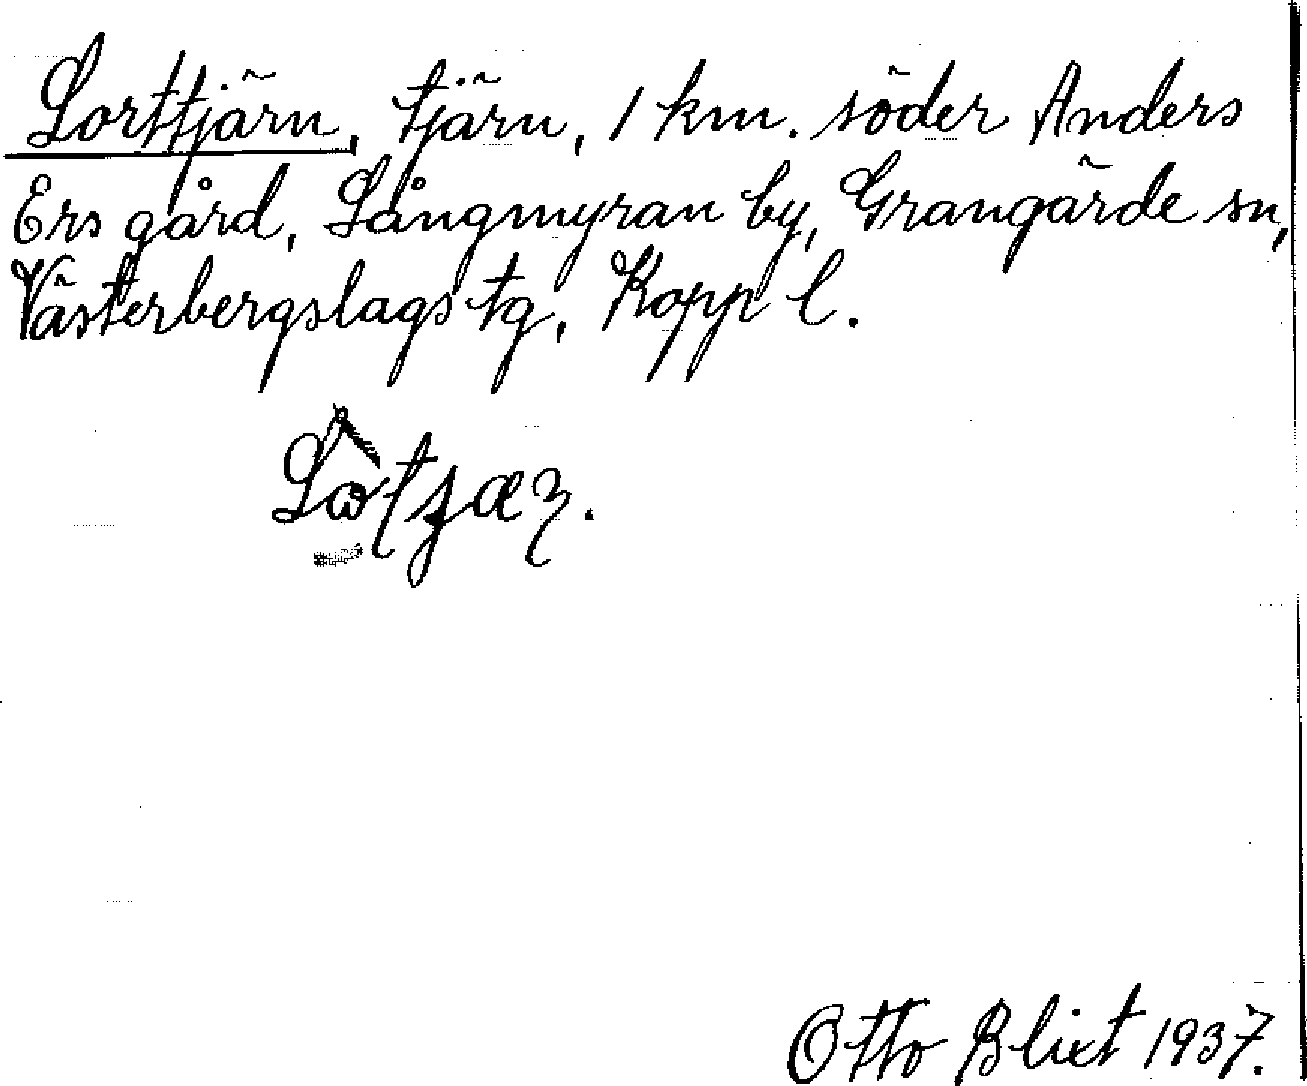 Lorttjärn, tjärn, 1 km. söder Anders
Ers gård, Långmyran by, Grangärde sn,
Västerbergslags tg, Kopp l.
Otto Blixt 1937.